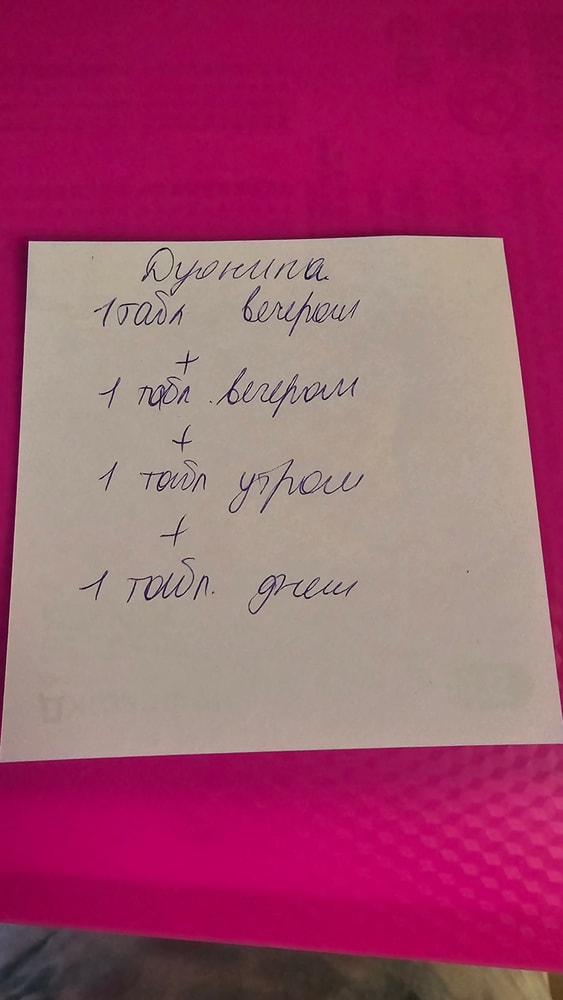 Дуонипа.
1 табл вечером
+
1 табл. вечером
+
1 табл утром
+
1 табл. днем